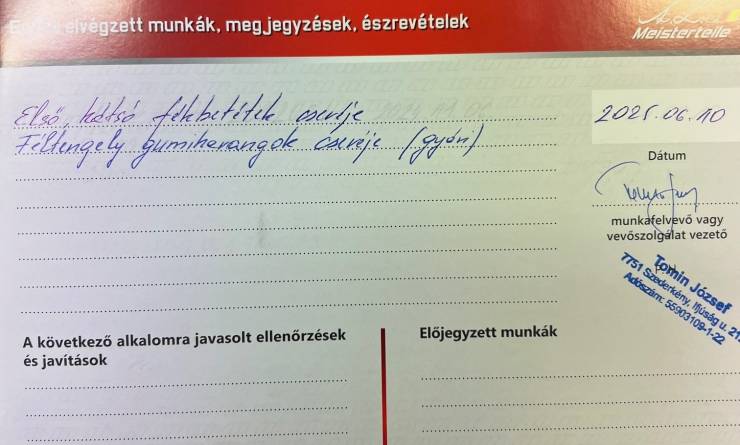 elvégzett munkák, megjegyzések, észrevételek
Meisterteile
Első, hátsó fékbetétek cseréje
Féltengely gumiharangok cseréje (gyári)
2025.06.10
Dátum
munkafelvevő vagy
vevőszolgálat vezető
Tomin József
7751 Szederkény, Ifjúság u. 21.
Adószám: 55903109-1-22
A következő alkalomra javasolt ellenőrzések
és javítások
Előjegyzett munkák